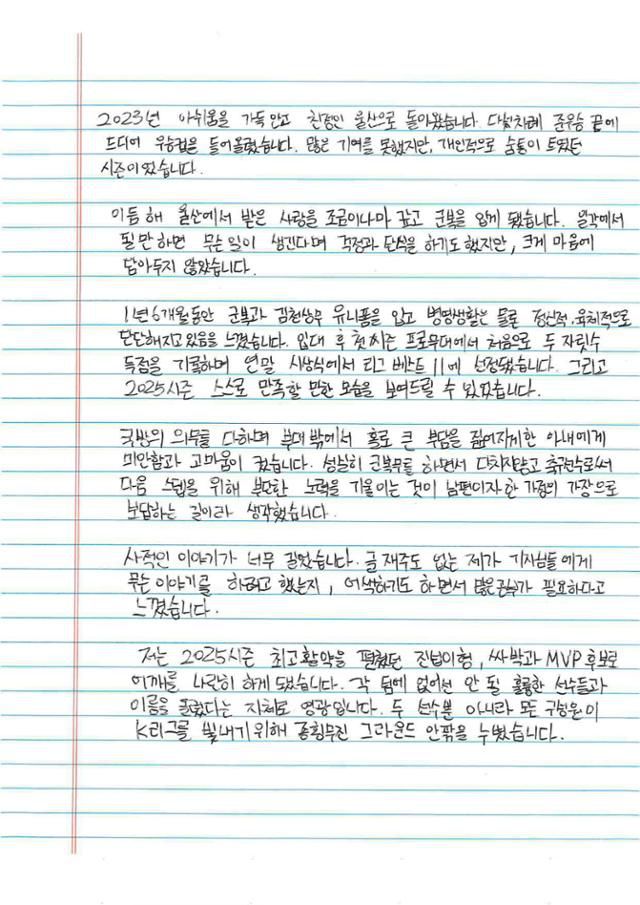 2023년 아쉬움을 가득 안고 친정인 울산으로 돌아왔습니다. 다섯차례 준우승 끝에
드디어 우승컵을 들어올렸습니다. 많은 기여를 못했지만, 개인적으로 숨통이 트였던
시즌이었습니다.
이듬해 울산에서 받은 사랑을 조금이나마 갚고 군복을 입게 됐습니다. 일각에서
될만하면 무슨 일이 생긴다며 걱정과 탄식을 하기도 했지만, 크게 마음에
담아두지 않았습니다.
1년 6개월동안 군복과 김천상무 유니폼을 입고 병영생활은 물론 정신적·육체적으로
단단해지고 있음을 느꼈습니다. 입대 후 첫 시즌 프로무대에서 처음으로 두 자릿수
득점을 기록하며 연말 시상식에서 리그 베스트 11에 선정됐습니다. 그리고
2025시즌 스스로 만족할 만한 모습을 보여드릴 수 있었습니다.
국방의 의무를 다하며 부대 밖에서 홀로 큰 부담을 짊어지게한 아내에게
미안함과 고마움이 컸습니다. 성실히 군복무를 하면서 다치지않고 축구선수로써
다음 스텝을 위해 부단한 노력을 기울이는 것이 남편이자 한 가정의 가장으로
보답하는 길이라 생각했습니다.
사적인 이야기가 너무 길었습니다. 글 재주도 없는 제가 기자님들에게
무슨 이야기를 하려고 했는지, 어색하기도 하면서 많은 용기가 필요하다고
느꼈습니다.
저는 2025시즌 최고 활약을 펼쳤던 진섭이형, 싸박과 MVP 후보로
어깨를 나란히 하게 됐습니다. 각 팀에 없어선 안 될 훌륭한 선수들과
이름을 올렸다는 자체로 영광입니다. 두 선수뿐 아니라 모든 구성원이
K리그를 빛내기 위해 종횡무진 그라운드 안팎을 누볐습니다.